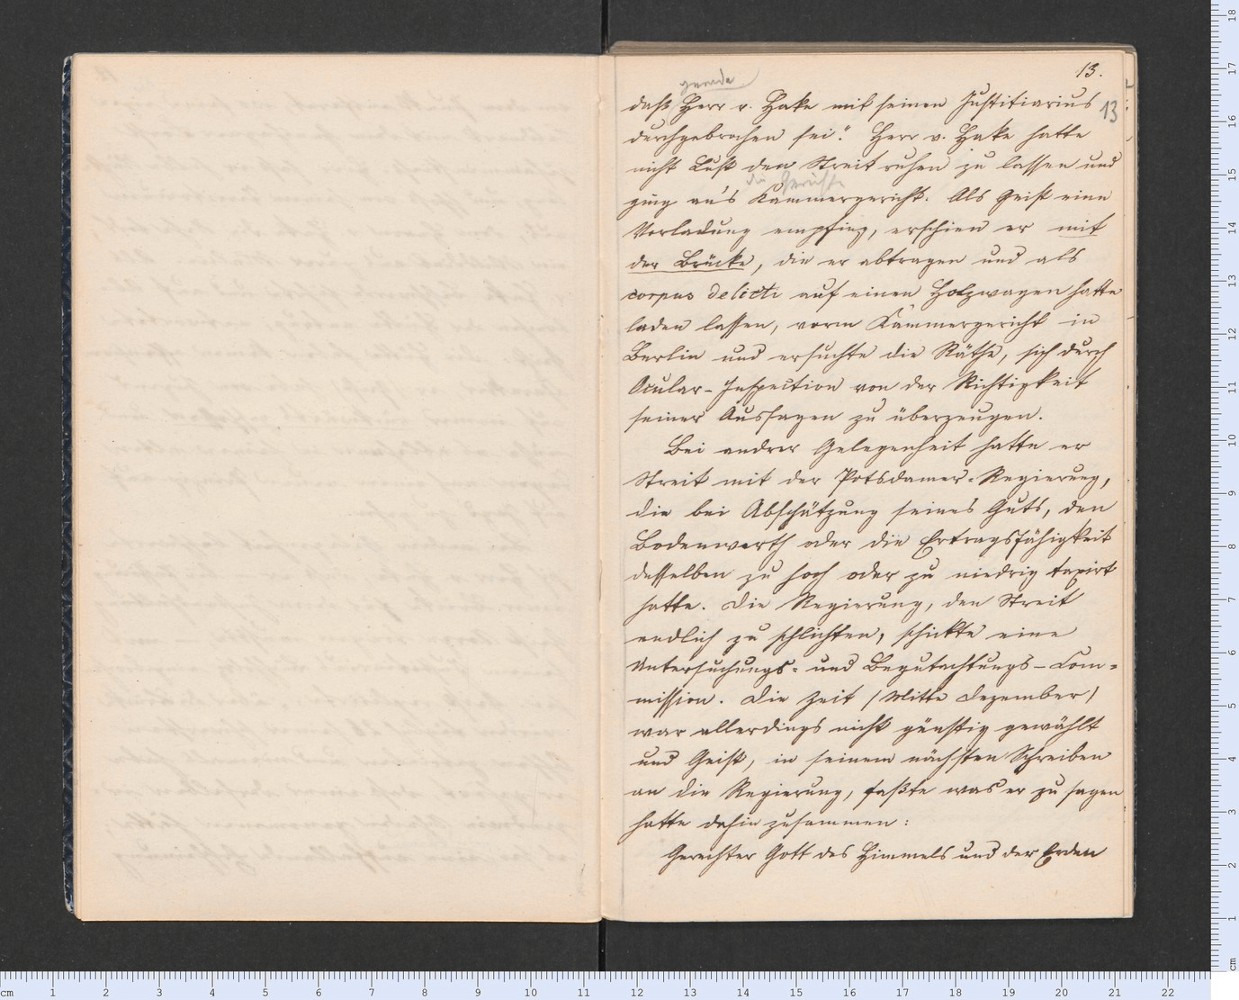 13.
13
gerade
daß Herr v. Hake mit seinem Justitiarius
durchgebrochen sei." Herr v. Hake hatte
nicht Lust den Streit ruhen zu lassen und
die Gerichte
ging an's Kammergericht. Als Geist eine
Vorladung empfing, erschien er mit
der Brücke, die er abtragen und als
corpus delicti auf einen Holzwagen hatte
laden lassen, vorm Kammergericht in
Berlin und ersuchte die Räthe, sich durch
Ocular-Inspection von der Richtigkeit
seiner Aussagen zu überzeugen.
Bei andrer Gelegenheit hatte er
Streit mit der Potsdamer-Regierung,
die bei Abschätzung seines Guts, den
Bodenwerth oder die Ertragsfähigkeit
desselben zu hoch oder zu niedrig taxirt
hatte. Die Regierung, den Streit
endlich zu schlichten, schickte eine
Untersuchungs- und Begutachtungs-Com-
mission. Die Zeit (Mitte Dezember)
war allerdings nicht günstig gewählt
und Geist, in seinem nächsten Schreiben
an die Regierung, faßte was er zu sagen
hatte dahin zusammen:
Gerechter Gott des Himmels und der Erden